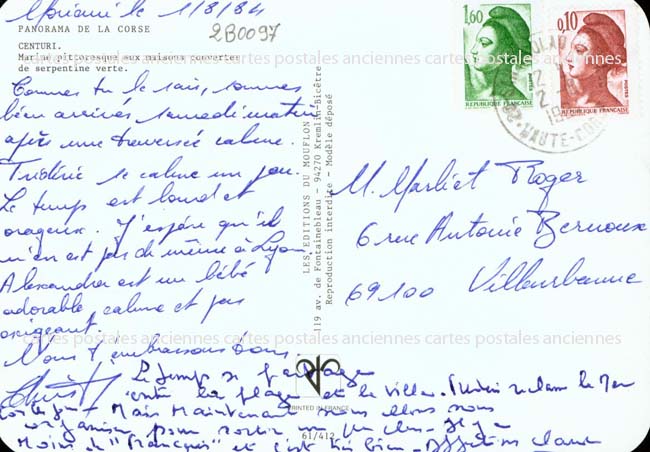 1/8/84
PANORAMA DE LA CORSE
2B0097
CENTURI.
Marine pittoresque aux maisons couvertes
de serpentine verte.
Comme tu le sais, sommes
bien arrivés samedi matin
après une traversée calme.
Frédéric se calme un peu.
Le temps est lourd et
orageux. J'espère qu'il
n'en est pas de même à Lyon.
Alexandra est un bébé
adorable, calme et pas
exigeant.
Nous t'embrassons tous
Le temps se partage
entre la plage et la villa. réclame la Mer
Mais Maintenant nous allons nous
organiser pour sortir un peu
Moins de "Français" et c'est très bien
LES EDITIONS DU MOUFLON
119 av. de Fontainebleau - 94270 Kremlin-Bicêtre
Reproduction interdite - Modèle déposé
PRINTED IN FRANCE
61/412
1,60
REPUBLIQUE FRANÇAISE
0,10
POSTES
REPUBLIQUE FRANÇAISE
HAUTE-CORSE
M. Marliet Roger
6 rue Antoine Bernoux
69100 Villeurbanne
cartes postales anciennes cartes postales anciennes cartes postales anciennes